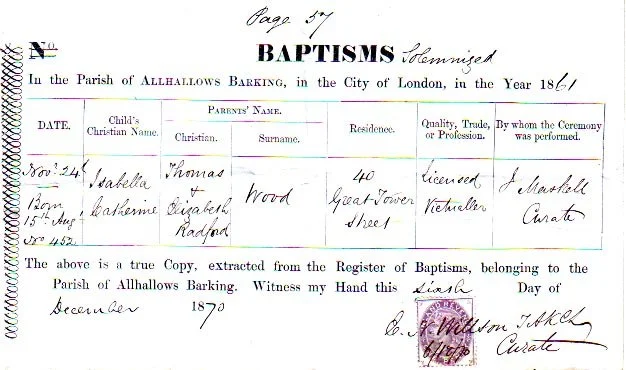 Page 57
No.
BAPTISMS Solemnized
In the Parish of ALLHALLOWS BARKING, in the City of London, in the Year 1861
DATE.
Child's
Christian Name.
PARENTS' NAME.
Christian.
Surname.
Residence.
Quality, Trade,
or Profession.
By whom the Ceremony
was performed.
Novr 24th
Born
15th Aug.
No 452
Isabella
Catherine
Thomas
+
Elizabeth
Radford
Wood
40
Great Tower
Street
Licensed
Victualler
J Maskell
Curate
The above is a true Copy, extracted from the Register of Baptisms, belonging to the
Parish of Allhallows Barking. Witness my Hand this sixth Day of
December 1870
C. N. Willson
Curate
6/12/70